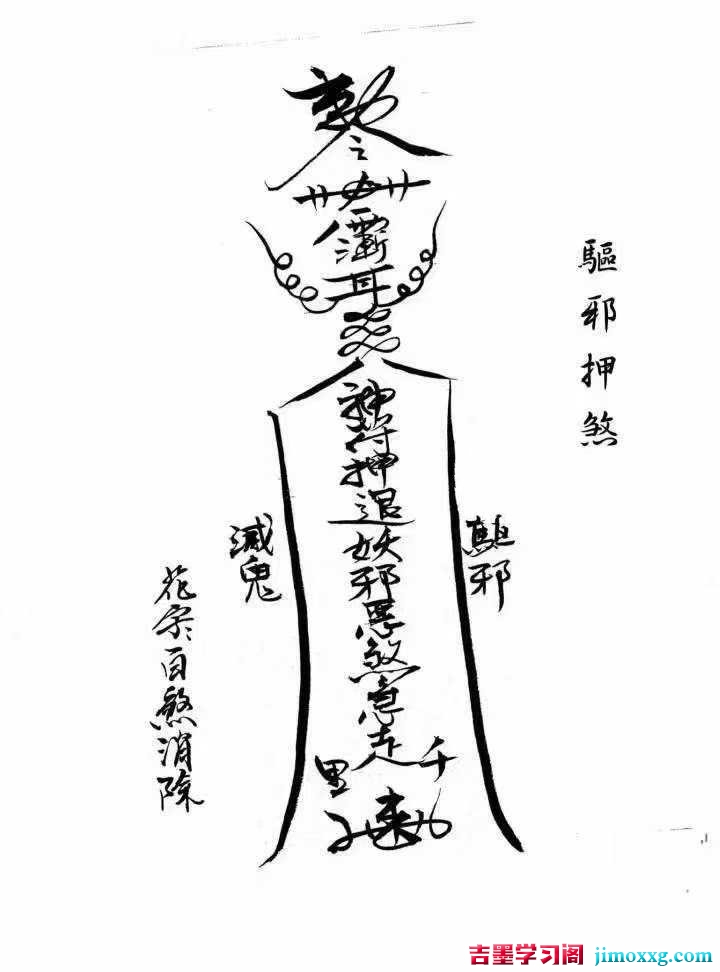 驅邪押煞
敕令
神符押退妖邪惡煞急走千里
驅邪
滅鬼
百煞消除
吉墨学习阁 jimoxxg.com